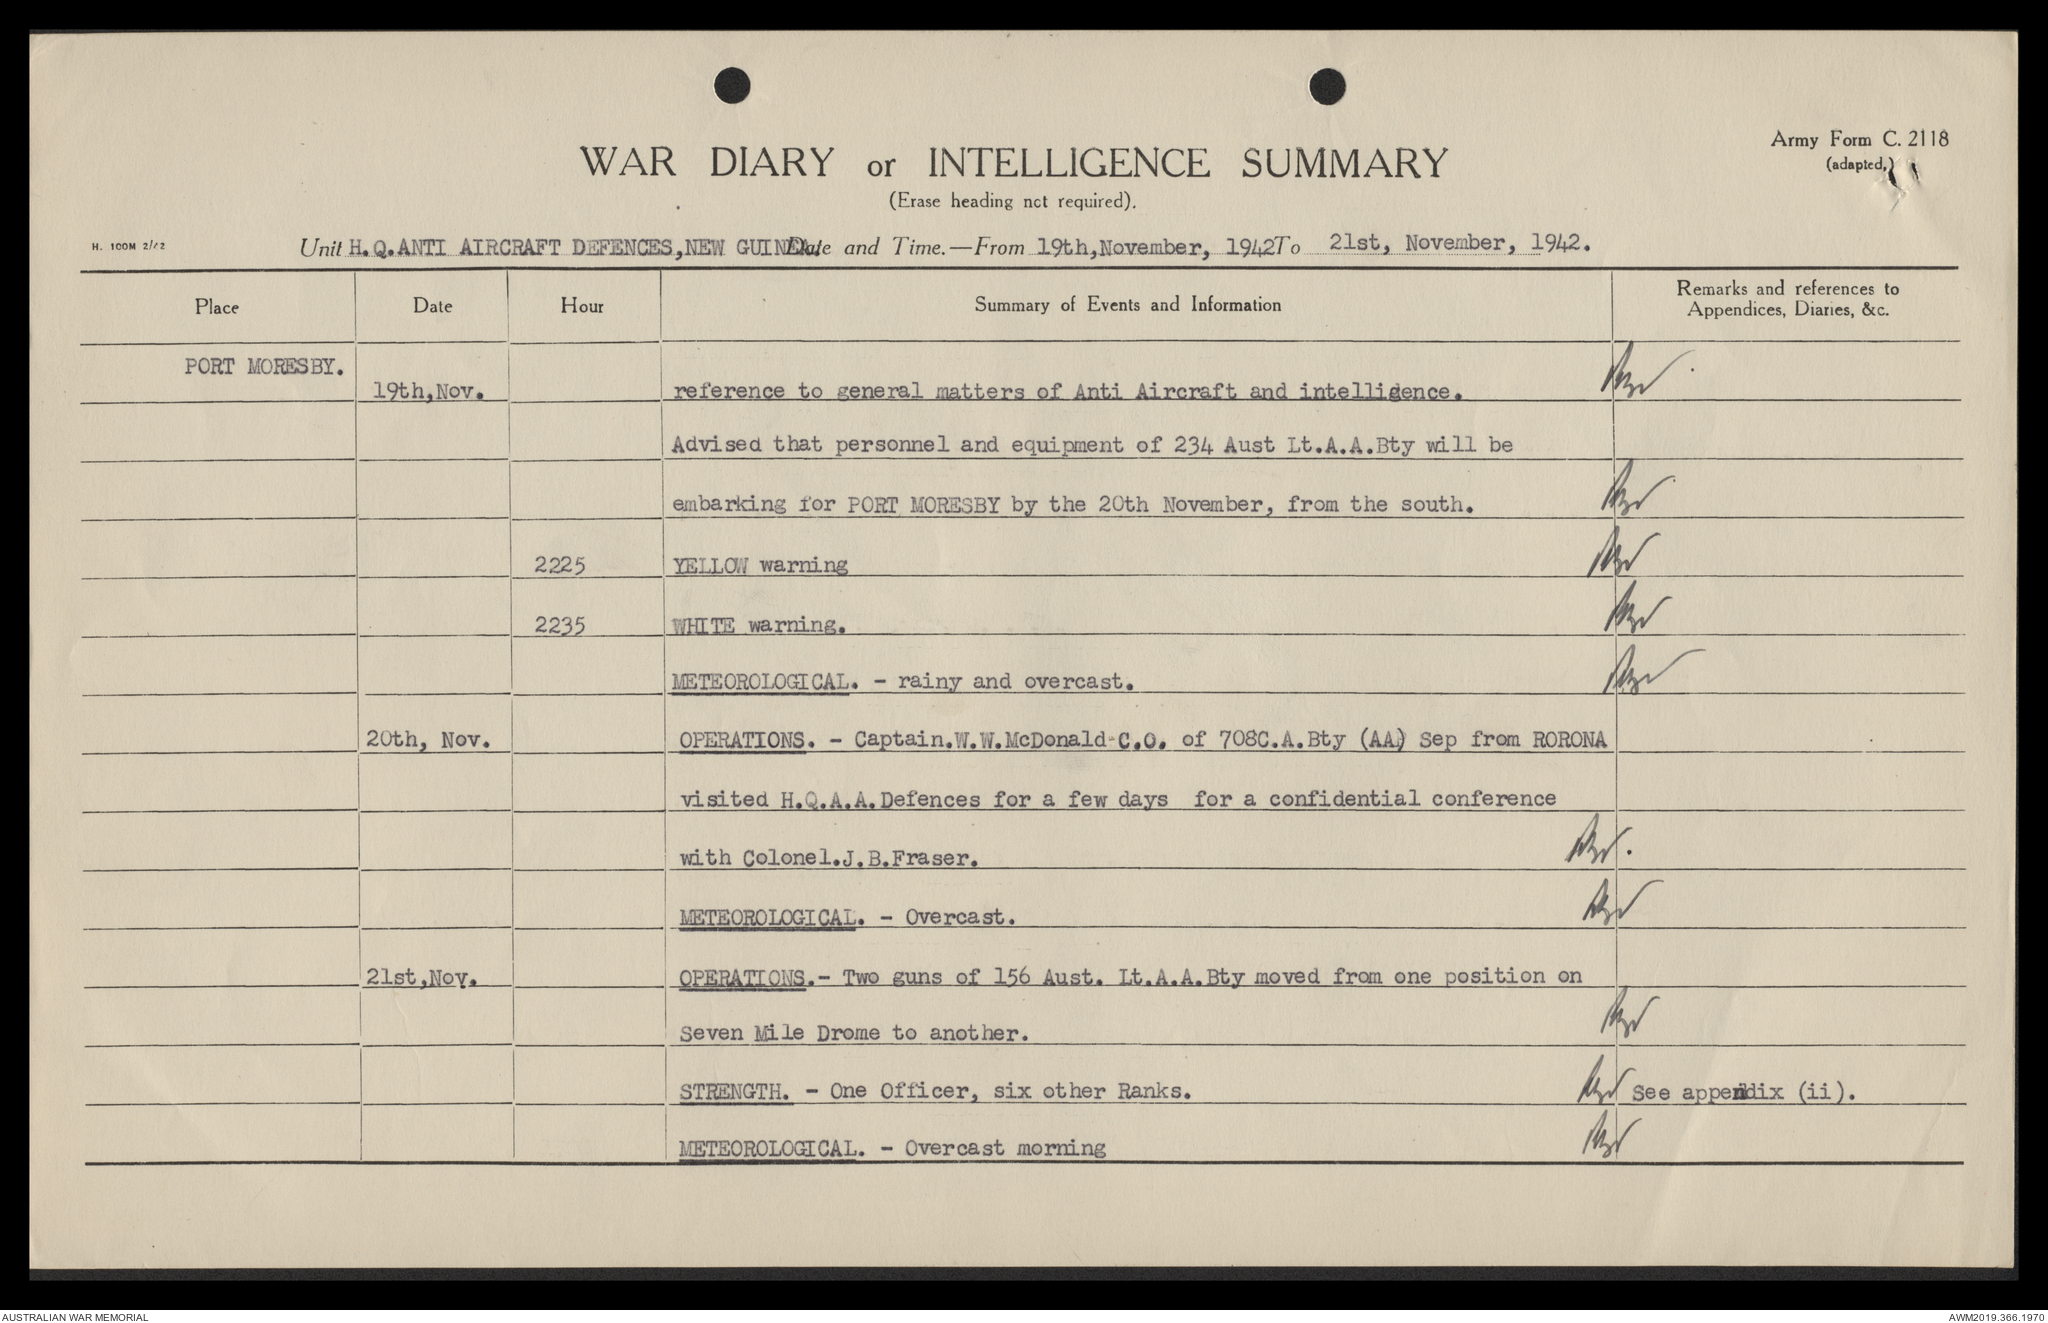 Army Form C. 2118
(adapted.)
WAR DIARY or INTELLIGENCE SUMMARY
(Erase heading not required).
H. 100M 2/42
Unit H.Q.ANTI AIRCRAFT DEFENCES,NEW GUINEA. Date and Time.—From 19th,November, 1942 To 21st, November, 1942.
Place Date Hour Summary of Events and Information Remarks and references to
Appendices, Diaries, &c.
PORT MORESBY.
19th,Nov. reference to general matters of Anti Aircraft and intelligence.
Advised that personnel and equipment of 234 Aust Lt.A.A.Bty will be
embarking for PORT MORESBY by the 20th November, from the south.
2225 YELLOW warning
2235 WHITE warning.
METEOROLOGICAL. - rainy and overcast.
20th, Nov. OPERATIONS. - Captain.W.W.McDonald-C.O. of 708C.A.Bty (AA) Sep from RORONA
visited H.Q.A.A.Defences for a few days for a confidential conference
with Colonel.J.B.Fraser.
METEOROLOGICAL. - Overcast.
21st,Nov. OPERATIONS.- Two guns of 156 Aust. Lt.A.A.Bty moved from one position on
Seven Mile Drome to another.
STRENGTH. - One Officer, six other Ranks. See appendix (ii).
METEOROLOGICAL. - Overcast morning
AUSTRALIAN WAR MEMORIAL AWM2019.366.1970